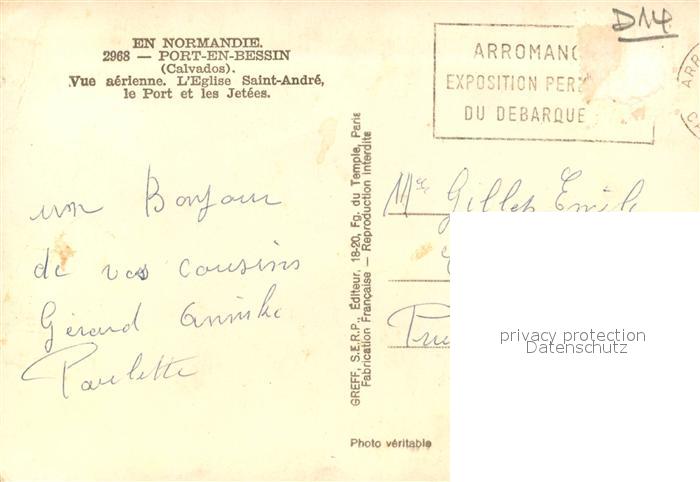 EN NORMANDIE.
2968 — PORT-EN-BESSIN
(Calvados).
Vue aérienne. L'Eglise Saint-André,
le Port et les Jetées.
D14
ARROMANC
EXPOSITION PER
DU DEBARQUE
ARR
un Bonjour
de vos cousins
Gérard Annike
Paulette
GREFF, S.E.R.P., Éditeur, 18-20, Fg. du Temple, Paris
Fabrication Française — Reproduction interdite
Gillet Emile
privacy protection
Datenschutz
Photo véritable